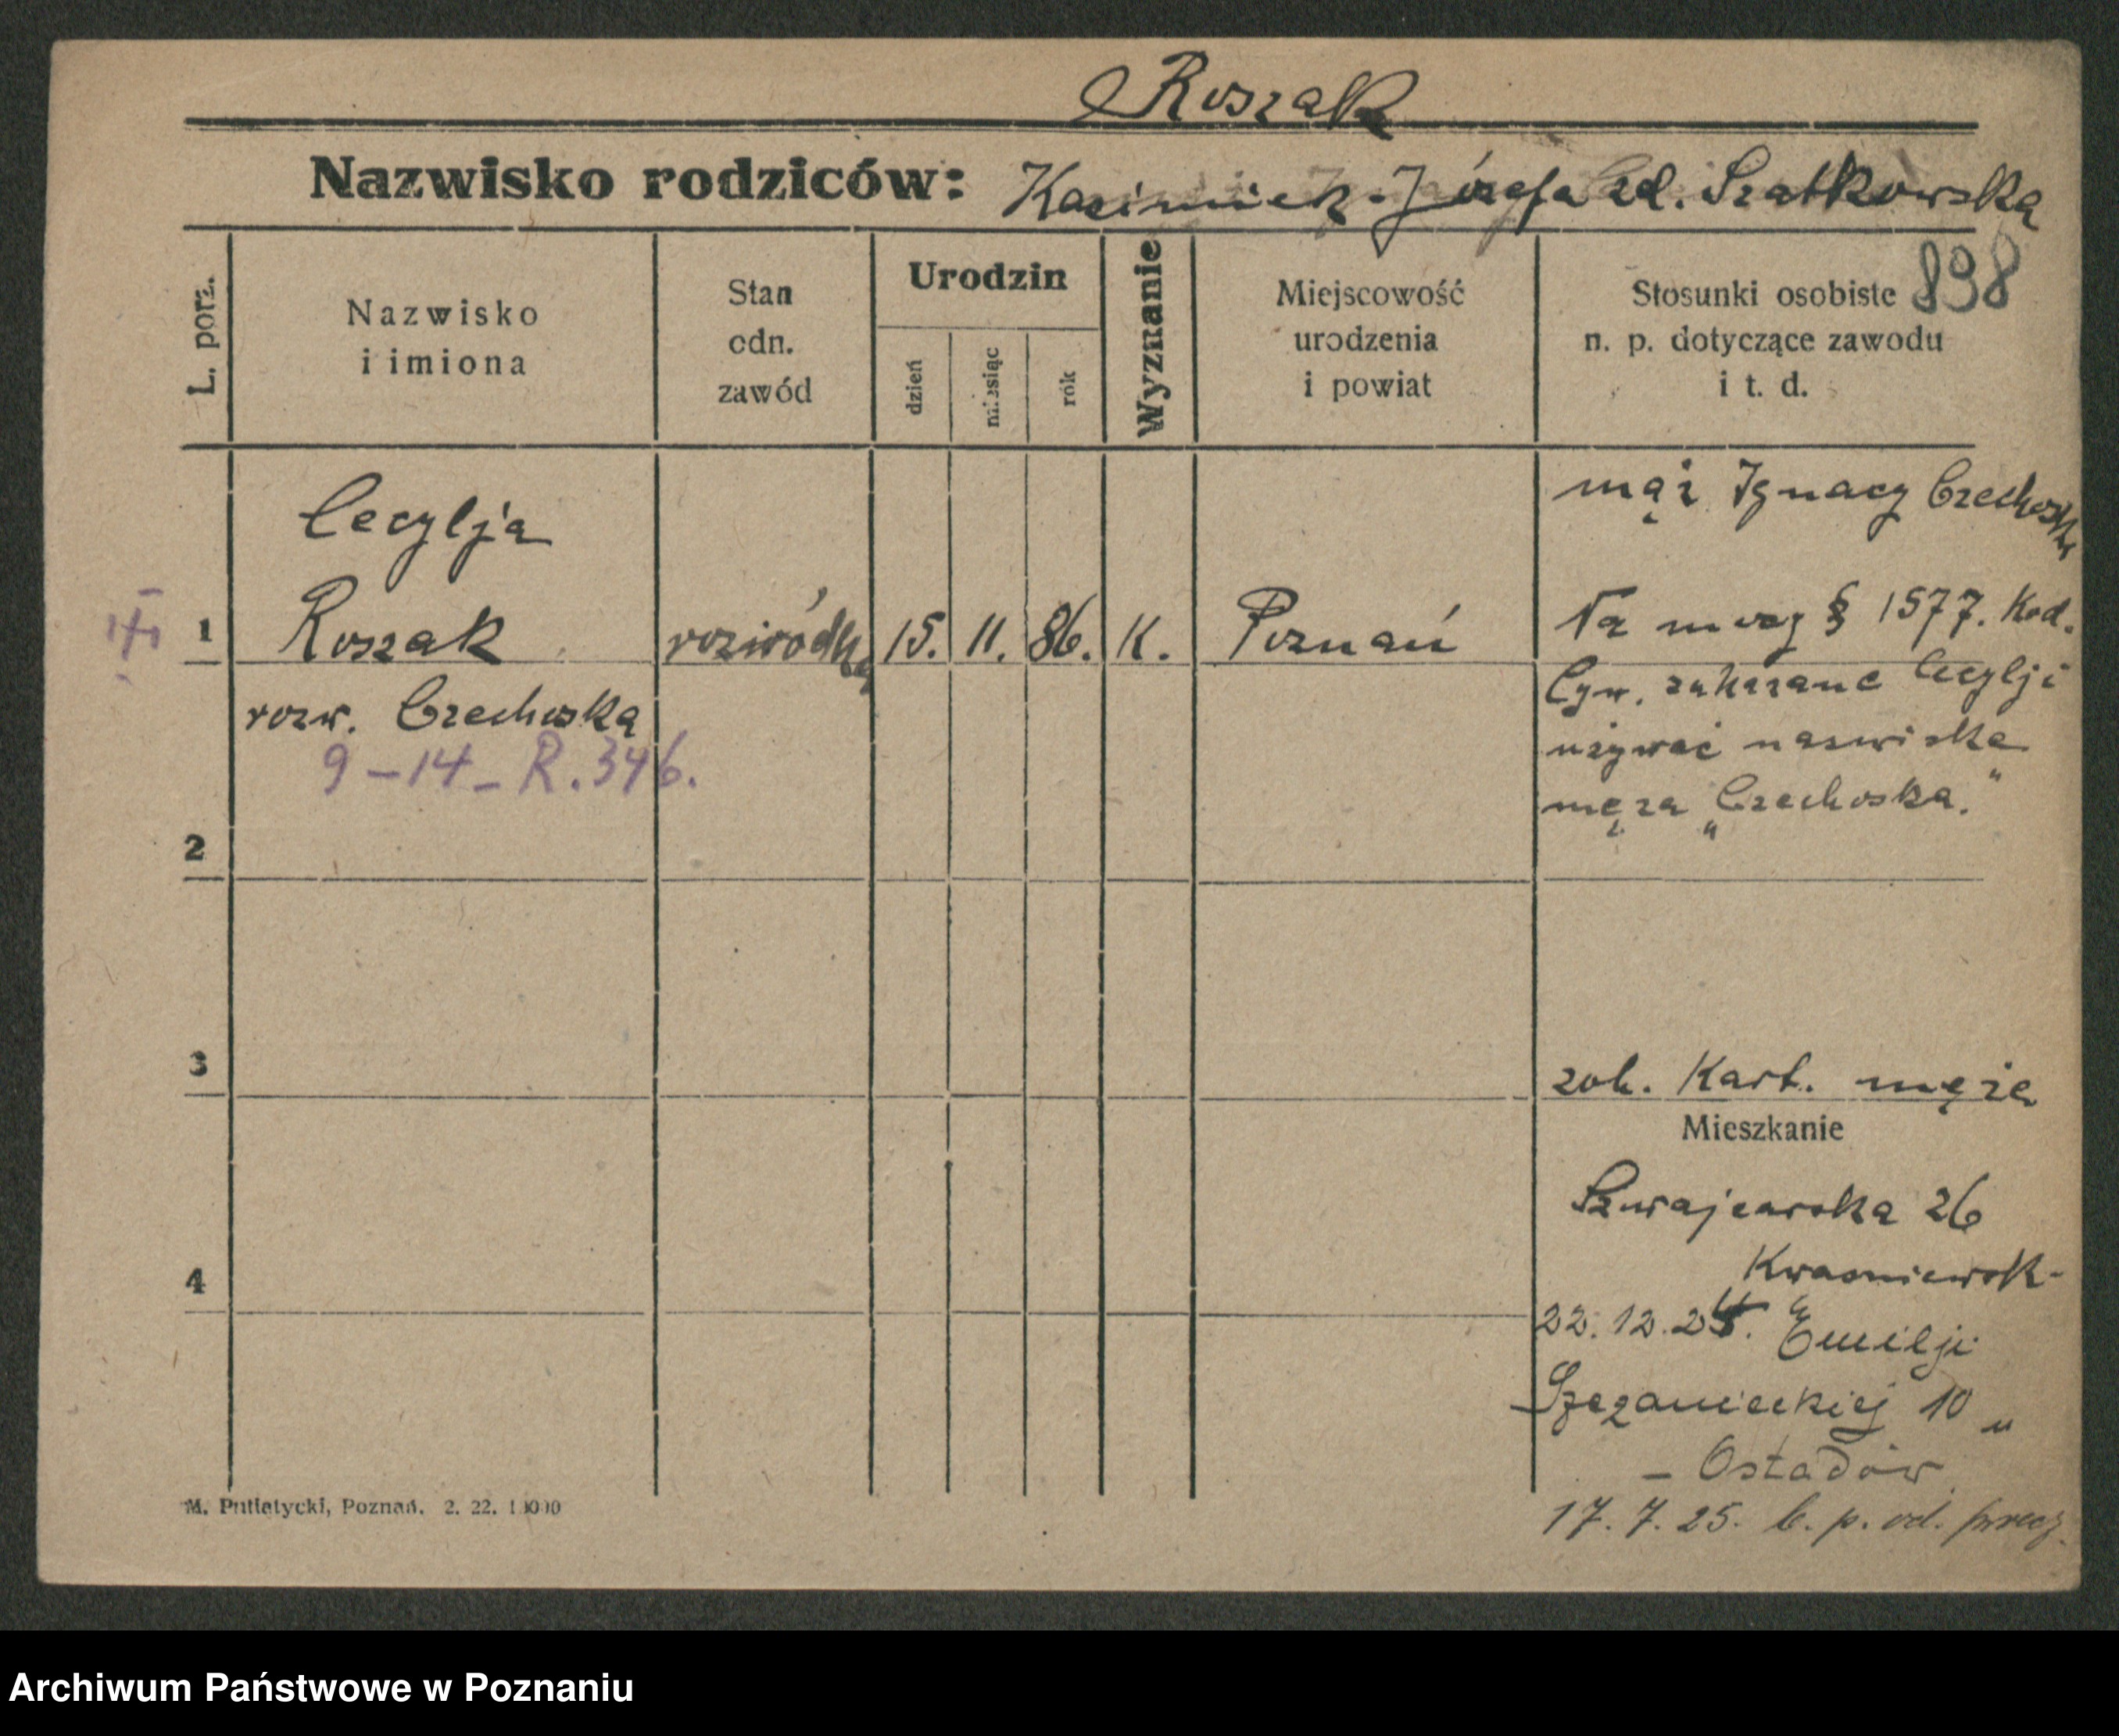 Roszak
Nazwisko rodziców: Kazimierz - Józefa zd. Szatkowska
898
L. porz.
Nazwisko
i imiona
Stan
odn.
zawód
Urodzin
dzień
miesiąc
rok
Wyznanie
Miejscowość
urodzenia
i powiat
Stosunki osobiste
n. p. dotyczące zawodu
i t. d.
mąż Ignacy Czechoski
Cecylja
1 Roszak rozwódka 15. 11. 86. K. Poznań
rozw. Czechoska
9 - 14 - R. 346.
Na mocy § 1577. Kod.
Cyw. zakazane Cecylji
używać nazwiska
męża „Czechoska."
2
3
zob. Kart. męża
Mieszkanie
Szwajcarska 26
Kwasniewsk-
4
22. 12. 24. Emilji
Szczanieckiej 10 u
- Ostadów
17. 7. 25. b. p. od. precz
M. Putiatycki, Poznań. 2. 22. 10000
Archiwum Państwowe w Poznaniu